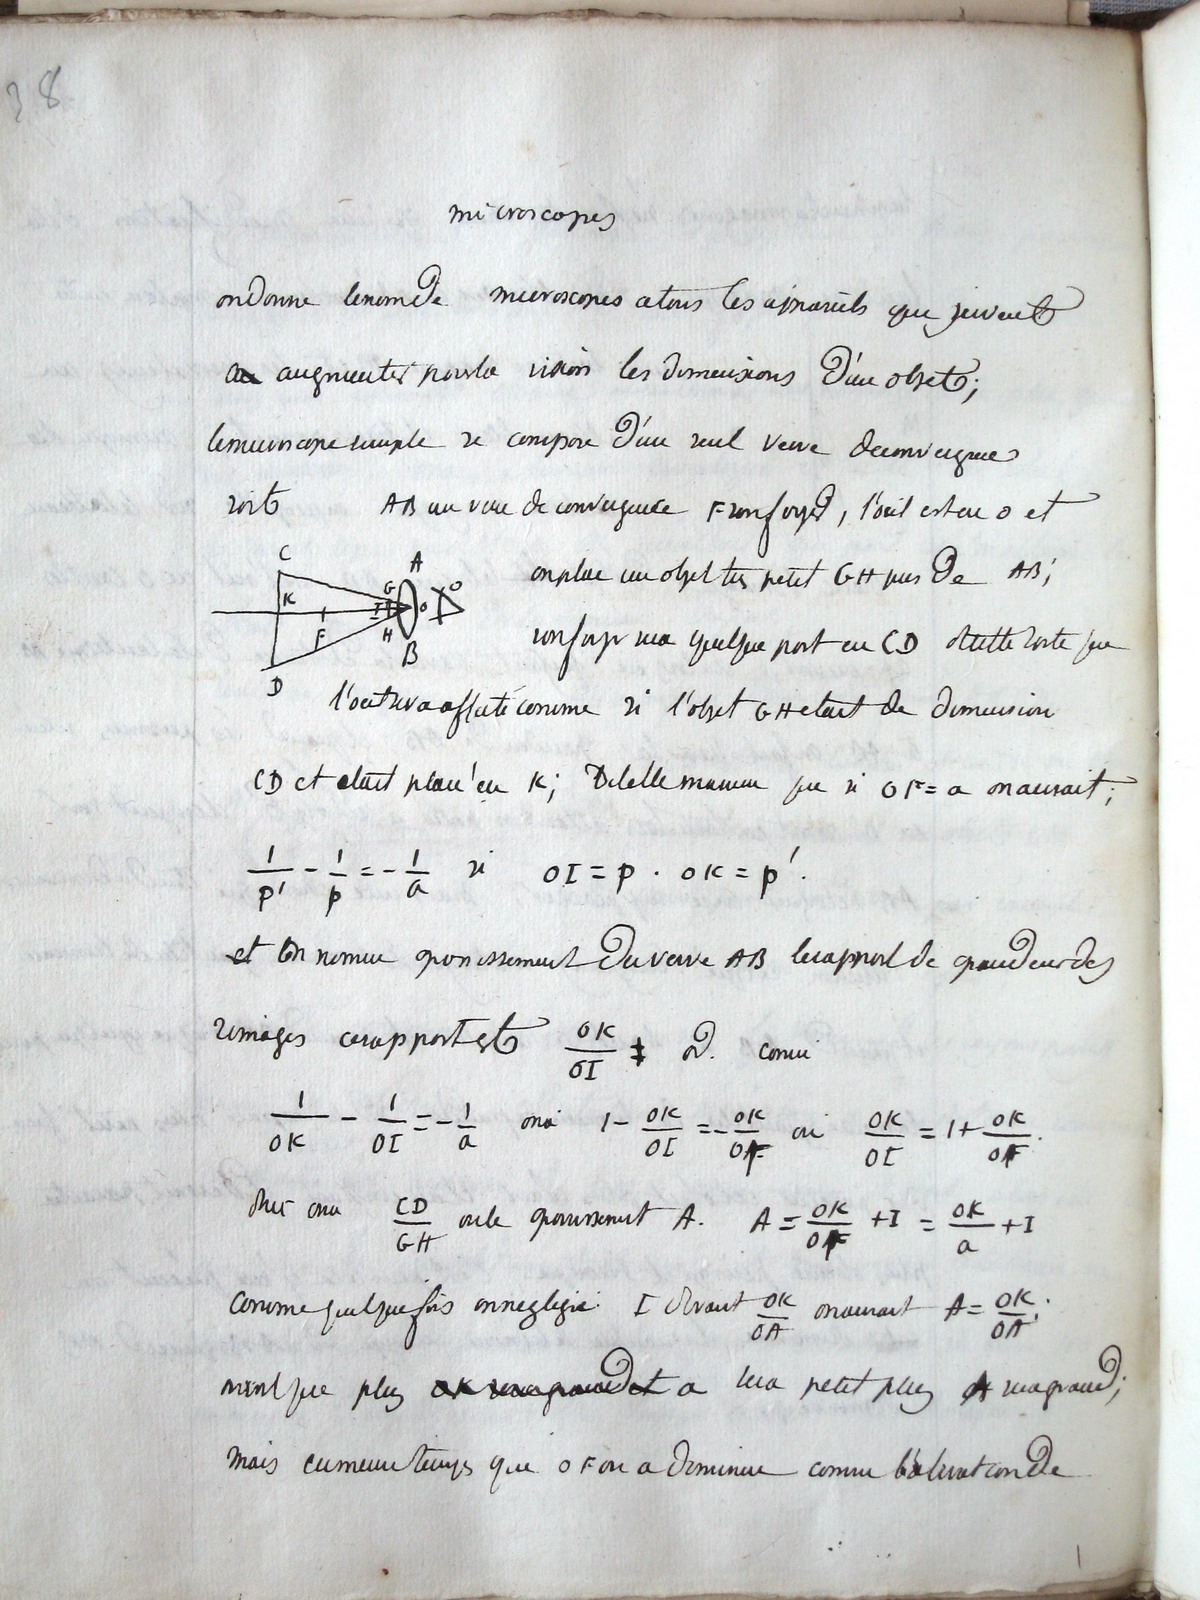 38
microscopes
on donne le nom de microscopes a tous les appareils qui peuvent
augmenter pour la vision les dimensions d'un objet;
le microscope simple se compose d'un seul verre de convergence
soit AB un verre de convergence F son foyer, l'œil est en O et
C A G K I O O F H B D
on place un objet très petit GH près de AB;
son foyer sera quelque part en CD de telle sorte que
l'œil sera affecté comme si l'objet GH etait de dimension
CD et etait placé en K; De telle maniere que si OF = a on aurait;
1/p' - 1/p = - 1/a si OI = p . OK = p'.
et on nomme grossissement du verre AB le rapport de grandeur des
2 images ce rapport est OK/OI d. comme
1/OK - 1/OI = - 1/a on a 1 - OK/OI = - OK/OF ou OK/OI = 1 + OK/OF.
donc on a CD/GH ou le grossissement A. A = OK/OF + I = OK/a + I
comme quelque fois on neglige I devant OK/OA on aurait A = OK/OA;
que plus a sera petit plus A sera grand;
mais en meme temps que OF ou a diminue comme de